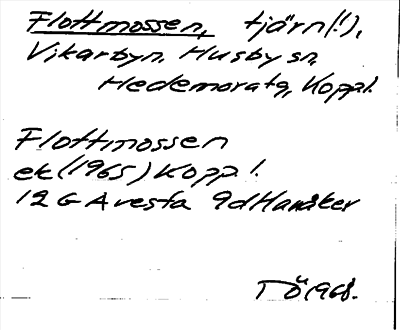 Flottmossen, tjärn(!),
Vikarbyn. Husby sn,
Hedemora tg, Koppl.
Flottmossen
ek(1965) Koppl.
12 G Avesta 9d Hanåker
TÖ 1968.